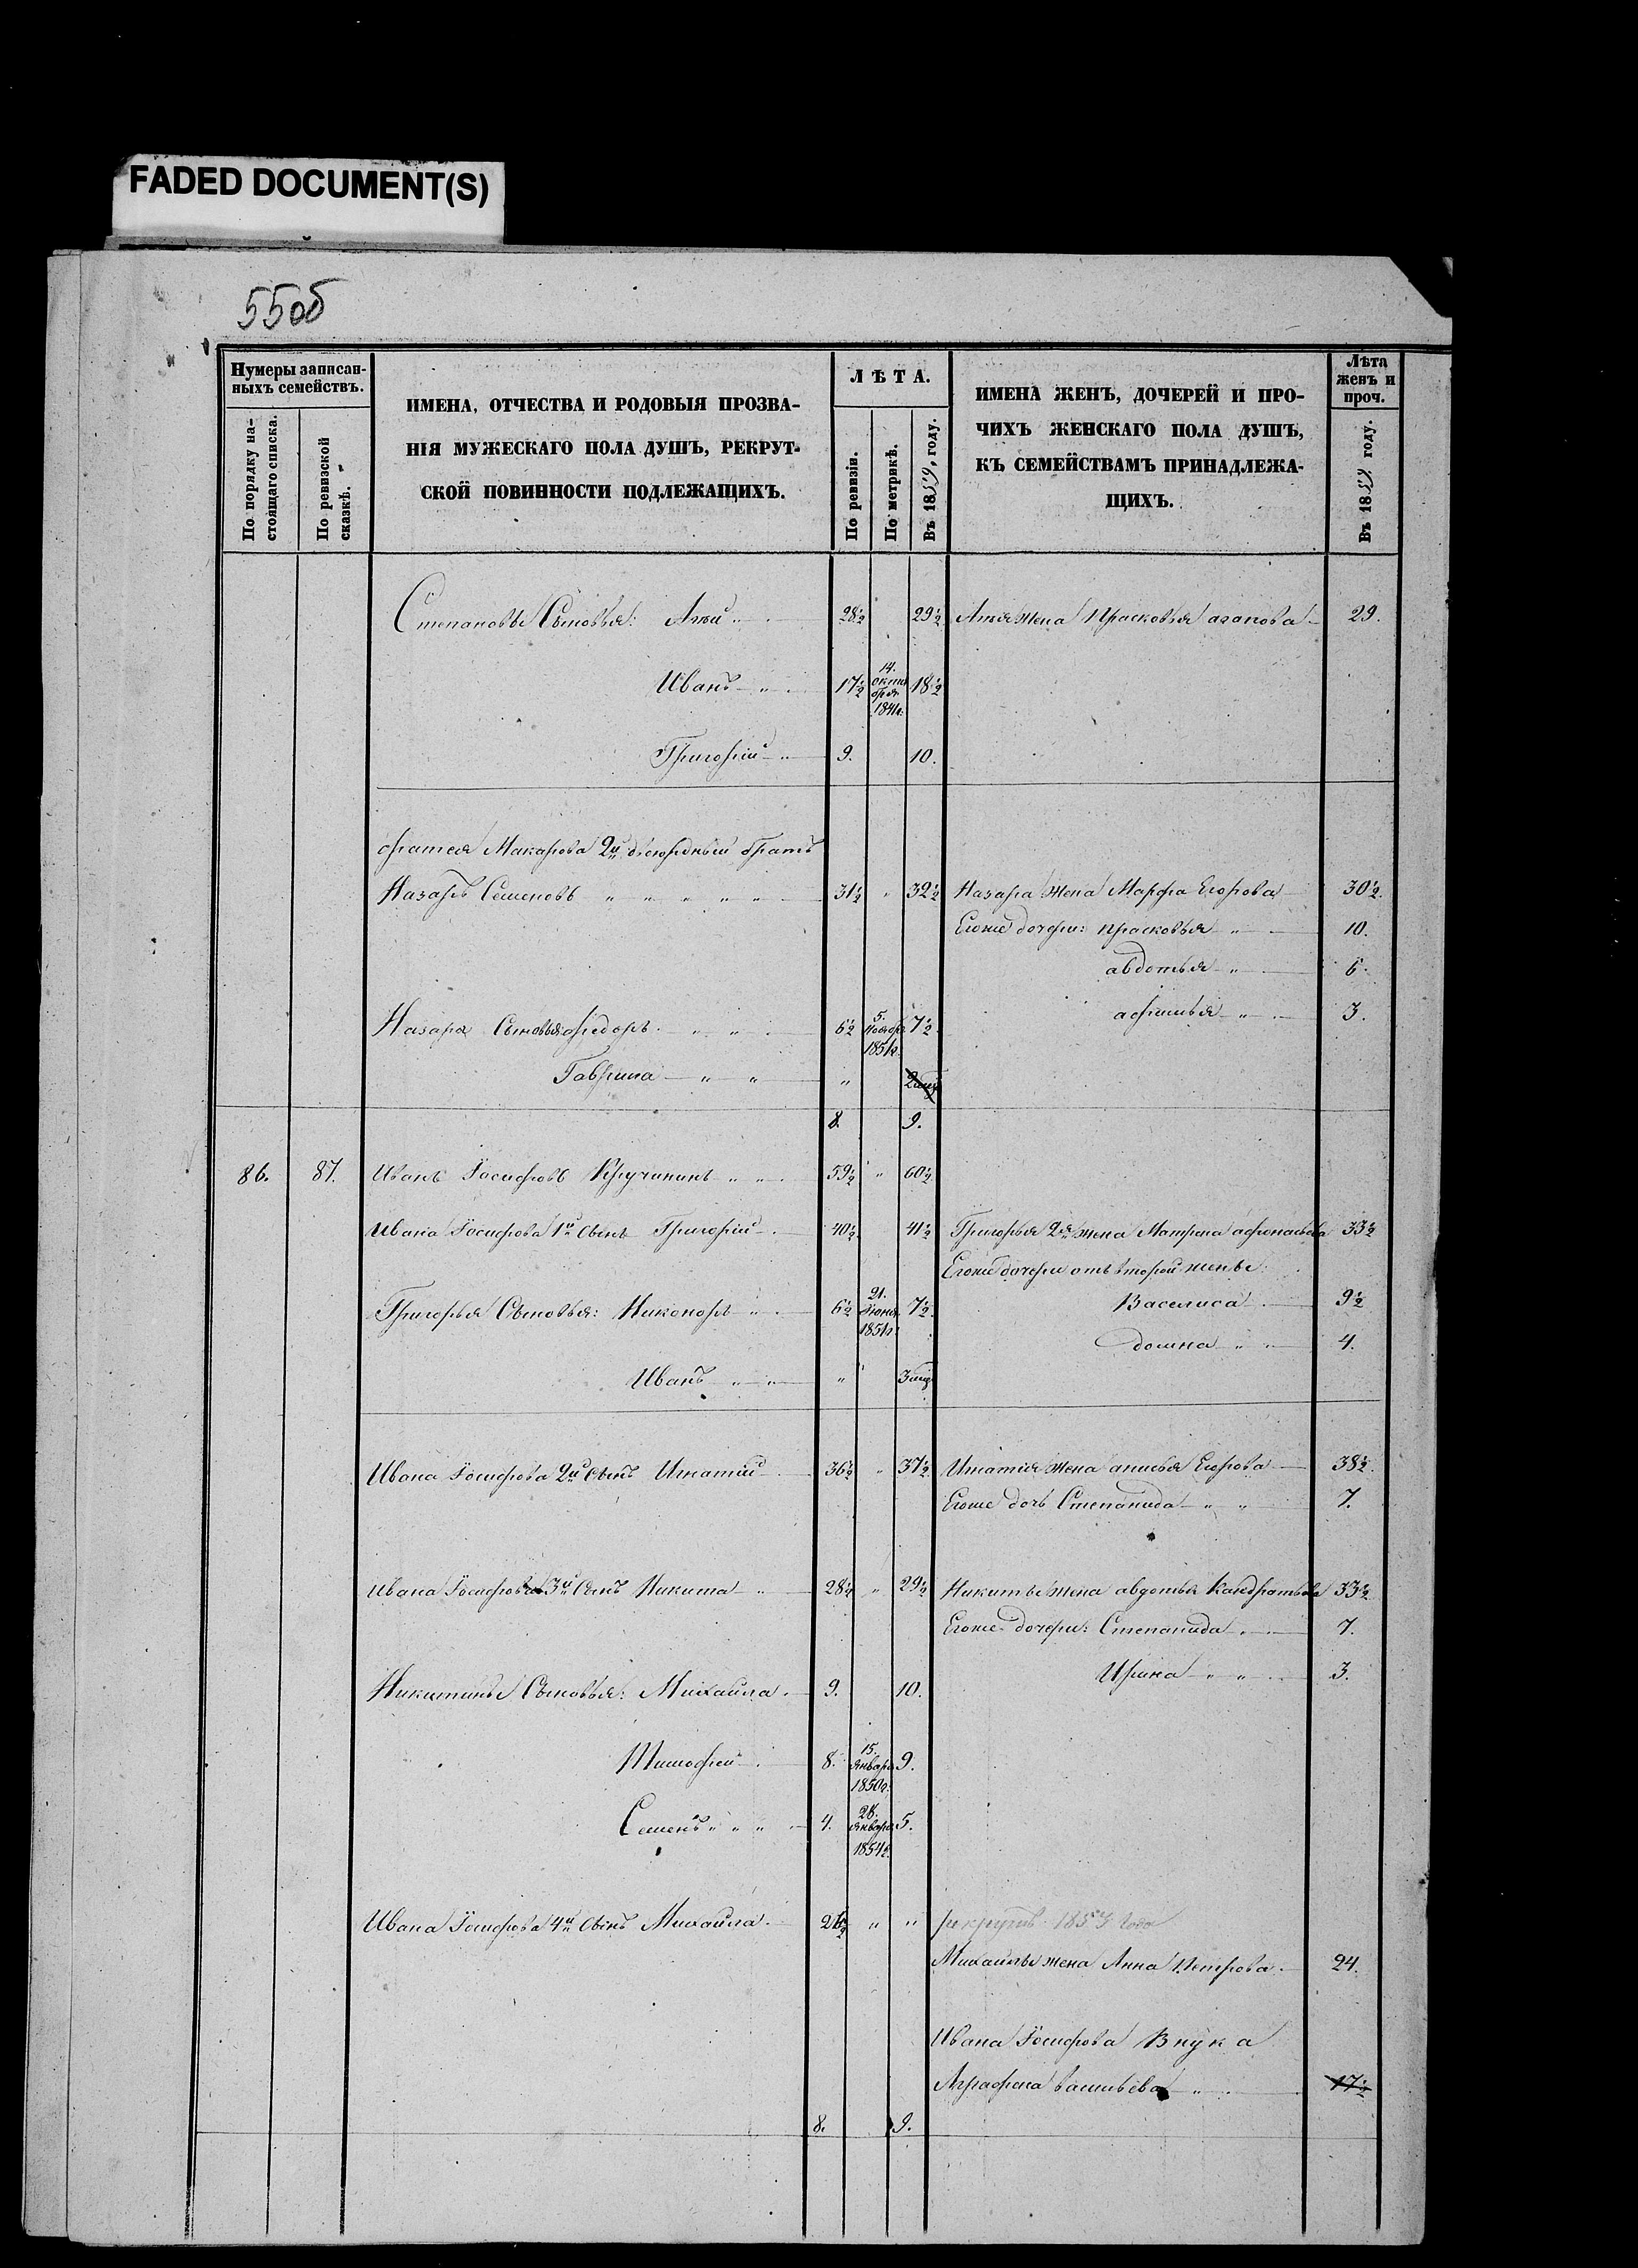 FADED DOCUMENT(S)
55об
Нумеры записан-
ныхъ семействъ.
По порядку на-
стоящаго списка.
По ревизской
сказкѣ.
ИМЕНА, ОТЧЕСТВА И РОДОВЫЯ ПРОЗВА-
НІЯ МУЖЕСКАГО ПОЛА ДУШЪ, РЕКРУТ-
СКОЙ ПОВИННОСТИ ПОДЛЕЖАЩИХЪ.
ЛѢТА.
По ревизіи.
По метрикѣ.
Въ 1859, году.
ИМЕНА ЖЕНЪ, ДОЧЕРЕЙ И ПРО-
ЧИХЪ ЖЕНСКАГО ПОЛА ДУШЪ,
КЪ СЕМЕЙСТВАМЪ ПРИНАДЛЕЖА-
ЩИХЪ.
Лѣта
женъ и
проч.
Въ 1859 году.
Степановы Сыновья: 28½ 29½ жена Прасковья агапова 29.
Иванъ 17½ 14. октября 1841г. 18½
Григорій 9. 10.
Макарова 2й двоюрдный братъ
Назаръ Семеновъ 31½ 32½ Назара жена Марфа Егорова 30½.
Егоже дочери: прасковья 10.
авдотья 6.
афимья 3.
Назара Сыновья: федоръ 6½ 5. Ноябр. 1851г. 7½
Гаврила 2 мѣц
8. 9.
86. 87. Иванъ Іосифовъ Кручининъ 59½ 60½
Ивана Іосифова 1й Сынъ Григорій 40½ 41½ Григорья 2я жена Матрена афонасьева 33½
Егоже дочери отъ второй жены:
Василиса 9½
Григорья Сыновья: Никоноръ 6½ 21. Іюня 1851г. 7½
домна 4.
Иванъ 3 мѣц
Ивана Іосифова 2й Сынъ Игнатій 36½ 37½ Игнатія жена анисья Егорова 38½.
Егоже дочь Степанида 7.
Ивана Іосифова 3й Сынъ Никита 28½ 29½ Никиты жена авдотья Кандратьева 33½
Егоже дочери: Степанида 7.
Ирина 3.
Никитины Сыновья: Михайла 9. 10.
Тимофей 8. 15. Января 1850г. 9.
Семенъ 4. 28. Января 1854г. 5.
Ивана Іосифова 4й Сынъ Михайла 26½ рекрутъ 1853 года
Михайлы жена Анна Петрова 24.
Ивана Іосифова Внука
Аграфена васильева 17½
8. 9.